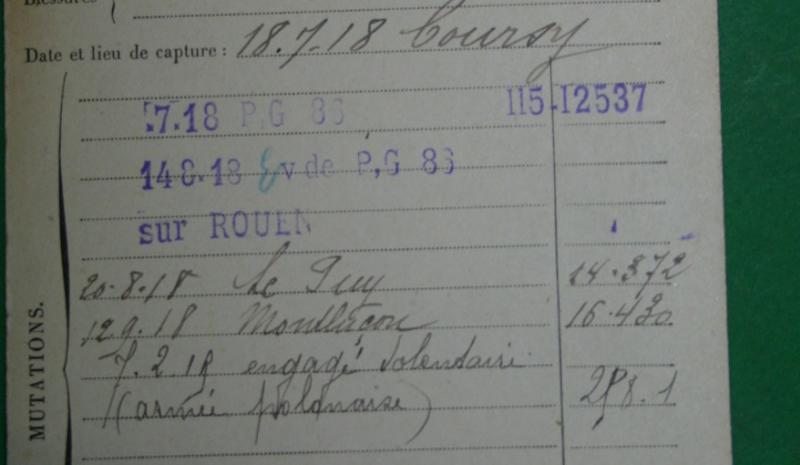 Blessures
Date et lieu de capture : 18.7.18 Courcy
.7.18 P,G 86 115-12537
148.18 Ev de P,G 86
sur ROUEN
20.8.18 Le Puy 14.372
12.9.18 Montluçon 16.430
7.2.19 engagé volontaire
(armée polonaise)
MUTATIONS.